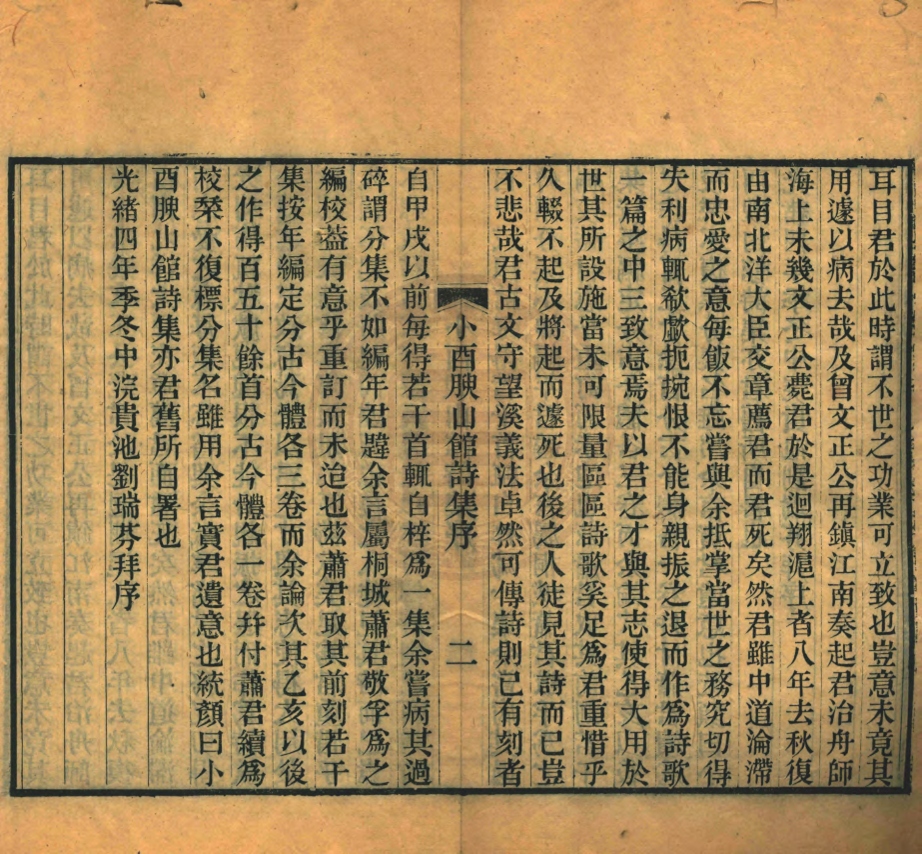 耳目君於此時謂不世之功業可立致也豈意未竟其
用遽以病去哉及曾文正公再鎭江南奏起君治舟師
海上未幾文正公薨君於是迴翔滬上者八年去秋復
由南北洋大臣交章薦君而君死矣然君雖中道淪滯
而忠愛之意每飯不忘嘗與余抵掌當世之務究切得
失利病輒欷歔扼捥恨不能身親振之退而作爲詩歌
一篇之中三致意焉夫以君之才與其志使得大用於
世其所設施當未可限量區區詩歌奚足爲君重惜乎
久輟不起及將起而遽死也後之人徒見其詩而已豈
不悲哉君古文守望溪義法卓然可傳詩則已有刻者
小酉腴山館詩集序 二
自甲戌以前每得若干首輒自梓爲一集余嘗病其過
碎謂分集不如編年君韙余言屬桐城蕭君敬孚爲之
編校葢有意乎重訂而未迨也玆蕭君取其前刻若干
集按年編定分古今體各三卷而余論次其乙亥以後
之作得百五十餘首分古今體各一卷幷付蕭君續爲
校栞不復標分集名雖用余言實君遺意也統顏曰小
酉腴山館詩集亦君舊所自署也
光緒四年季冬中浣貴池劉瑞芬拜序